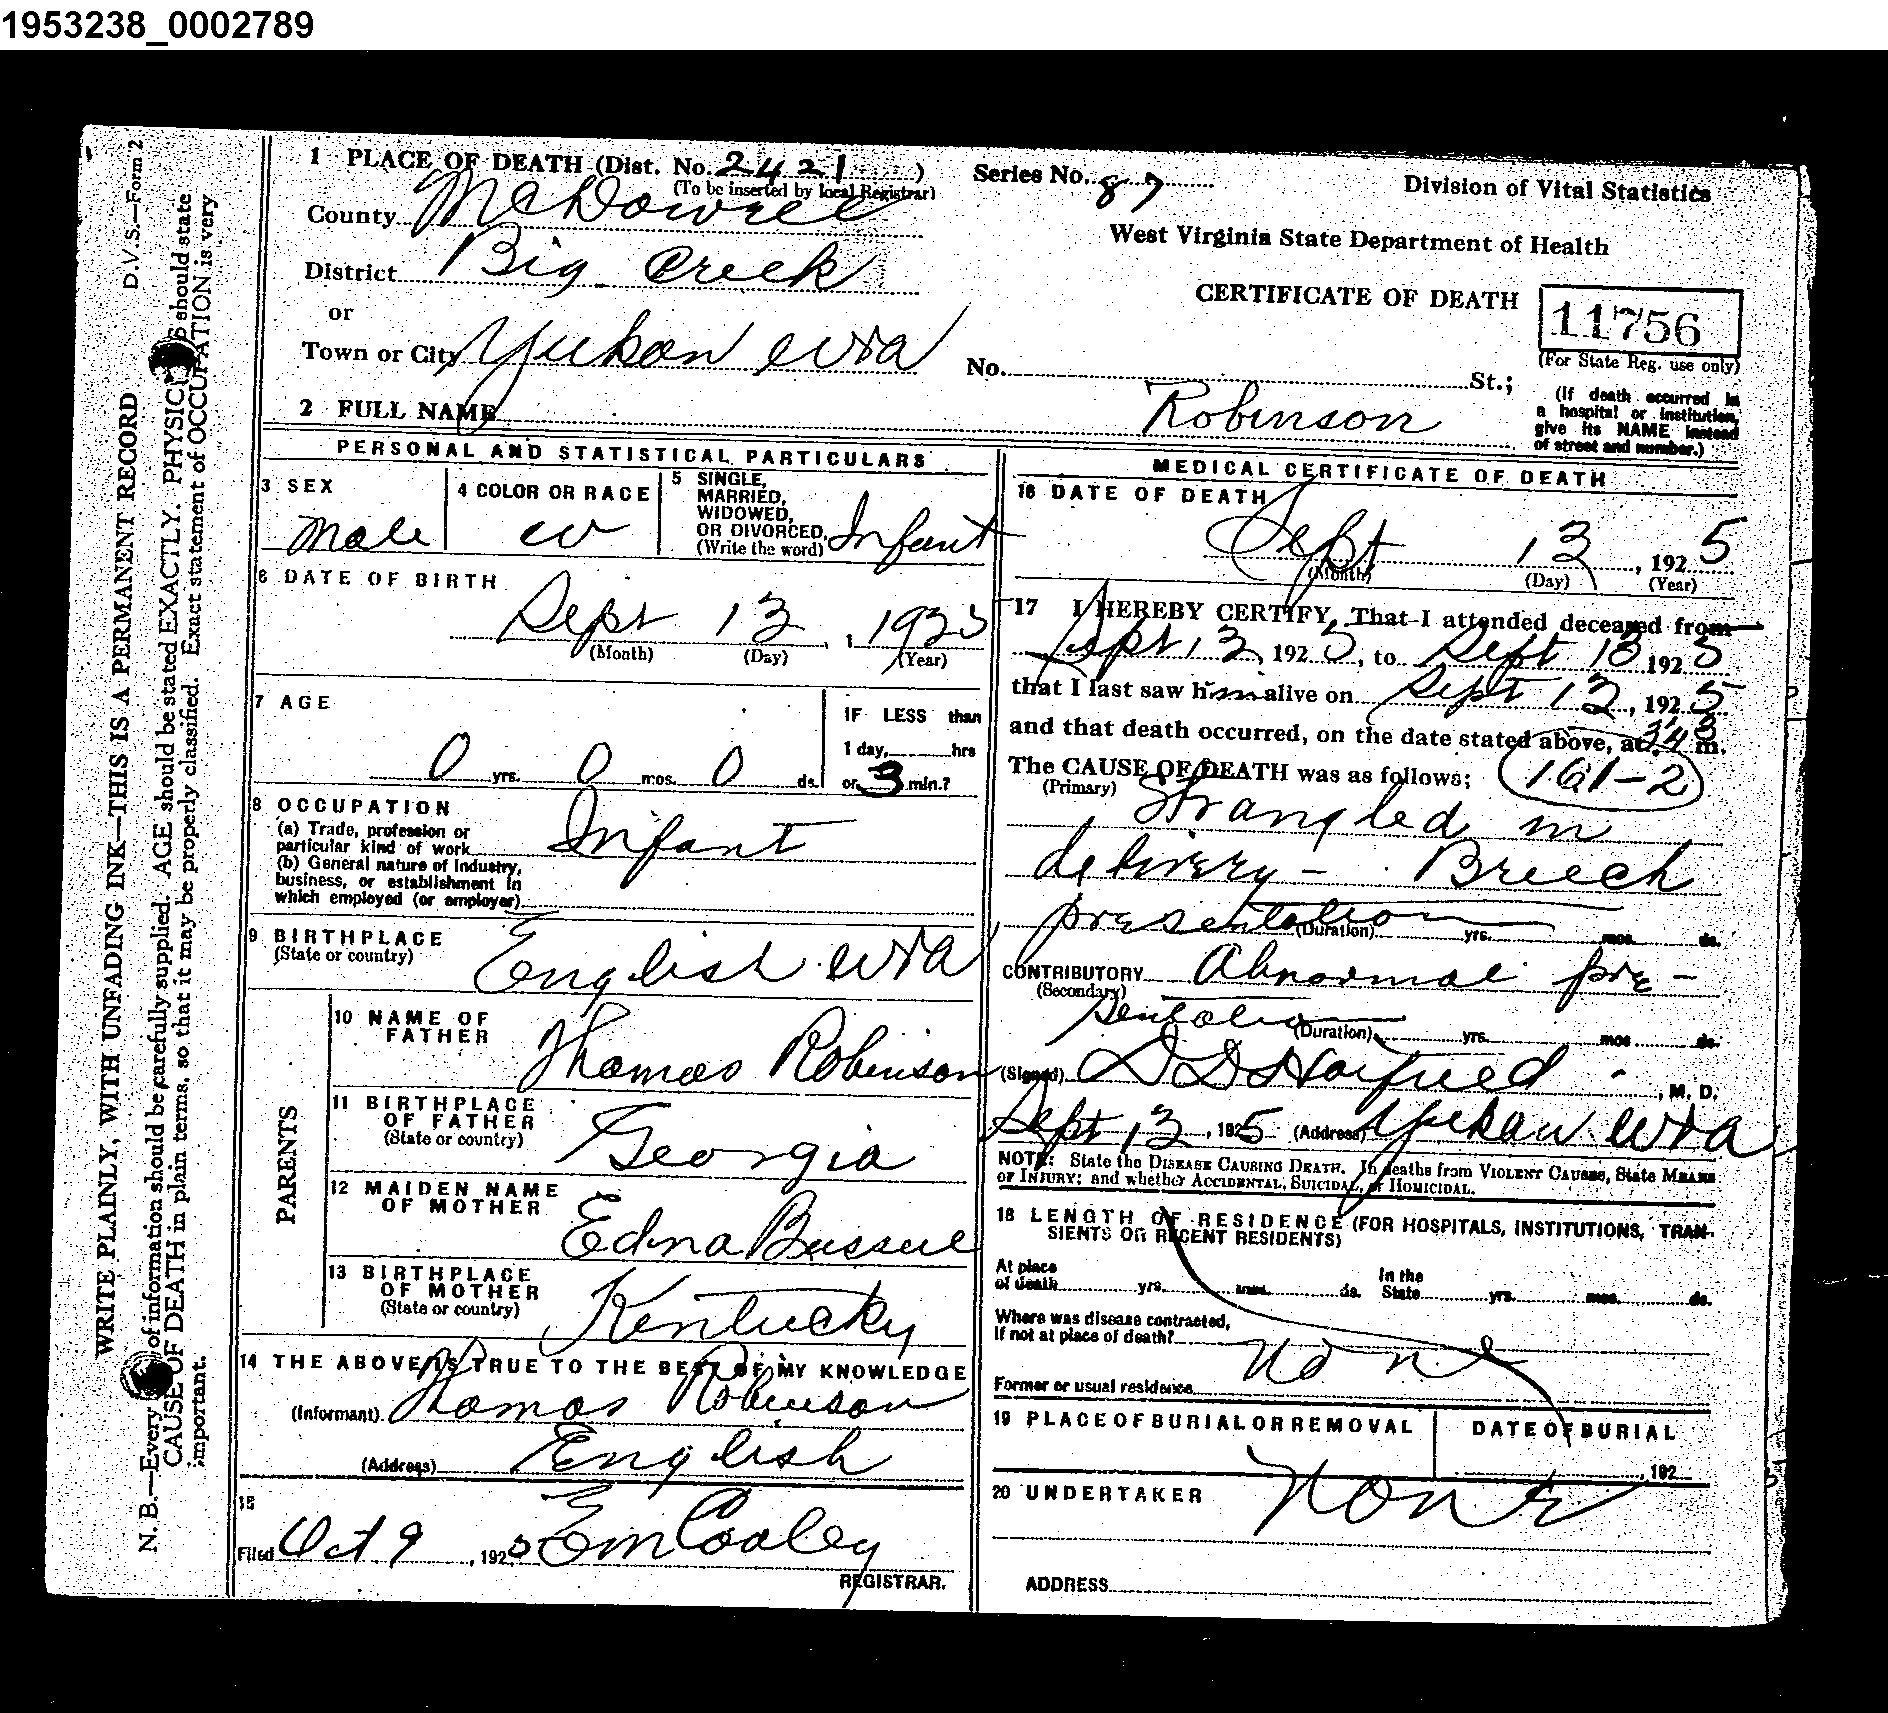 1953238_0002789
D.V.S.—Form 2
WRITE PLAINLY, WITH UNFADING INK—THIS IS A PERMANENT RECORD
N. B.—Every of information should be carefully supplied. AGE should be stated EXACTLY. PHYSIC S should state
CAUSE OF DEATH in plain terms, so that it may be properly classified. Exact statement of OCCUPATION is very
important.
1 PLACE OF DEATH (Dist. No. 2421)
(To be inserted by local Registrar)
Series No. 87
Division of Vital Statistics
County McDowell
West Virginia State Department of Health
District Big Creek
CERTIFICATE OF DEATH
11756
(For State Reg. use only)
or
Town or City Yukon W Va
No. St.;
(If death occurred in
a hospital or institution,
give its NAME instead
of street and number.)
2 FULL NAME Robinson
PERSONAL AND STATISTICAL PARTICULARS
3 SEX
Male
4 COLOR OR RACE
W
5 SINGLE,
MARRIED,
WIDOWED,
OR DIVORCED,
(Write the word) Infant
6 DATE OF BIRTH
Sept 13, 1925
(Month) (Day) (Year)
7 AGE
0 yrs. 0 mos. 0 ds.
IF LESS than
1 day, hrs
or 3 min.?
8 OCCUPATION
(a) Trade, profession or
particular kind of work Infant
(b) General nature of industry,
business, or establishment in
which employed (or employer)
9 BIRTHPLACE
(State or country) English W Va
PARENTS
10 NAME OF
FATHER Thomas Robinson
11 BIRTHPLACE
OF FATHER
(State or country) Georgia
12 MAIDEN NAME
OF MOTHER Edna
13 BIRTHPLACE
OF MOTHER
(State or country) Kentucky
14 THE ABOVE IS TRUE TO THE BEST OF MY KNOWLEDGE
(Informant) Thomas Robinson
(Address) English
15
Filed Oct 9, 1925 E M Cooley
REGISTRAR.
MEDICAL CERTIFICATE OF DEATH
16 DATE OF DEATH
Sept 13, 1925
(Month) (Day) (Year)
17 I HEREBY CERTIFY, That I attended deceased from
Sept 13, 1925, to Sept 13 1925
that I last saw him alive on Sept 13, 1925
and that death occurred, on the date stated above, at m.
The CAUSE OF DEATH was as follows: 161-2
(Primary) Strangled in
delivery - Breech
presentation (Duration) yrs. mos. ds.
CONTRIBUTORY Abnormal pre-
(Secondary)
sentation (Duration) yrs. mos. ds.
(Signed) D D Hatfield, M. D.
Sept 13, 1925 (Address) Yukon W Va
NOTE: State the DISEASE CAUSING DEATH. In deaths from VIOLENT CAUSES, State MEANS
OF INJURY; and whether ACCIDENTAL, SUICIDAL, or HOMICIDAL.
18 LENGTH OF RESIDENCE (FOR HOSPITALS, INSTITUTIONS, TRAN-
SIENTS OR RECENT RESIDENTS)
At place In the
of death yrs. mos. ds. State yrs. mos. ds.
Where was disease contracted,
If not at place of death?
None
Former or usual residence
19 PLACE OF BURIAL OR REMOVAL DATE OF BURIAL
, 192
20 UNDERTAKER None
ADDRESS